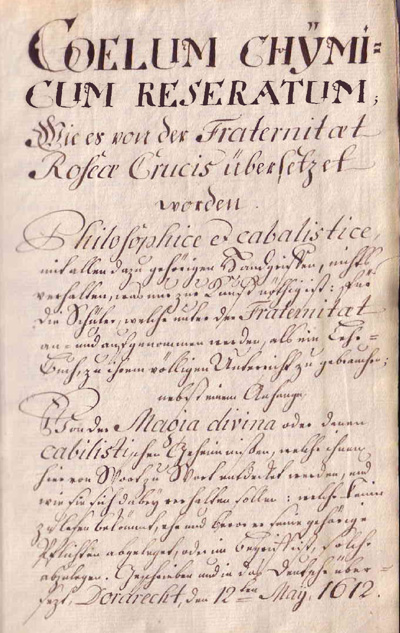 COELUM CHŸMI=
CUM RESERATUM;
Wie es von der Fraternitæt
Roseæ Crucis übersetzet
worden.
Philosophice et cabalistice,
mit allen dazu gehörigen Handgriffen, nichts
verhalten, was nur zur Kunst nöthig ist: Für
die Schüler, welche unter der Fraternitæt
an= und aufgenommen werden, als ein Lehr=
Buch, zu ihrem völligen Unterricht zu gebrauchen;
nebst einem Anhange,
Von der Magia divina oder denen
cabilistischen Geheimnißen, welche ihnen
hier von Wort zu Wort entdecket werden, und
wie sie sich dabey verhalten sollen: welche keiner
zu lesen bekömmt, ehe und bevor er seine gehörige
Pflichten abgeleget, oder im Begriff ist, solche
abzulegen. Geschrieben und in das Deutsche über=
setzt, Dordrecht, den 12ten Maÿ, 1612.